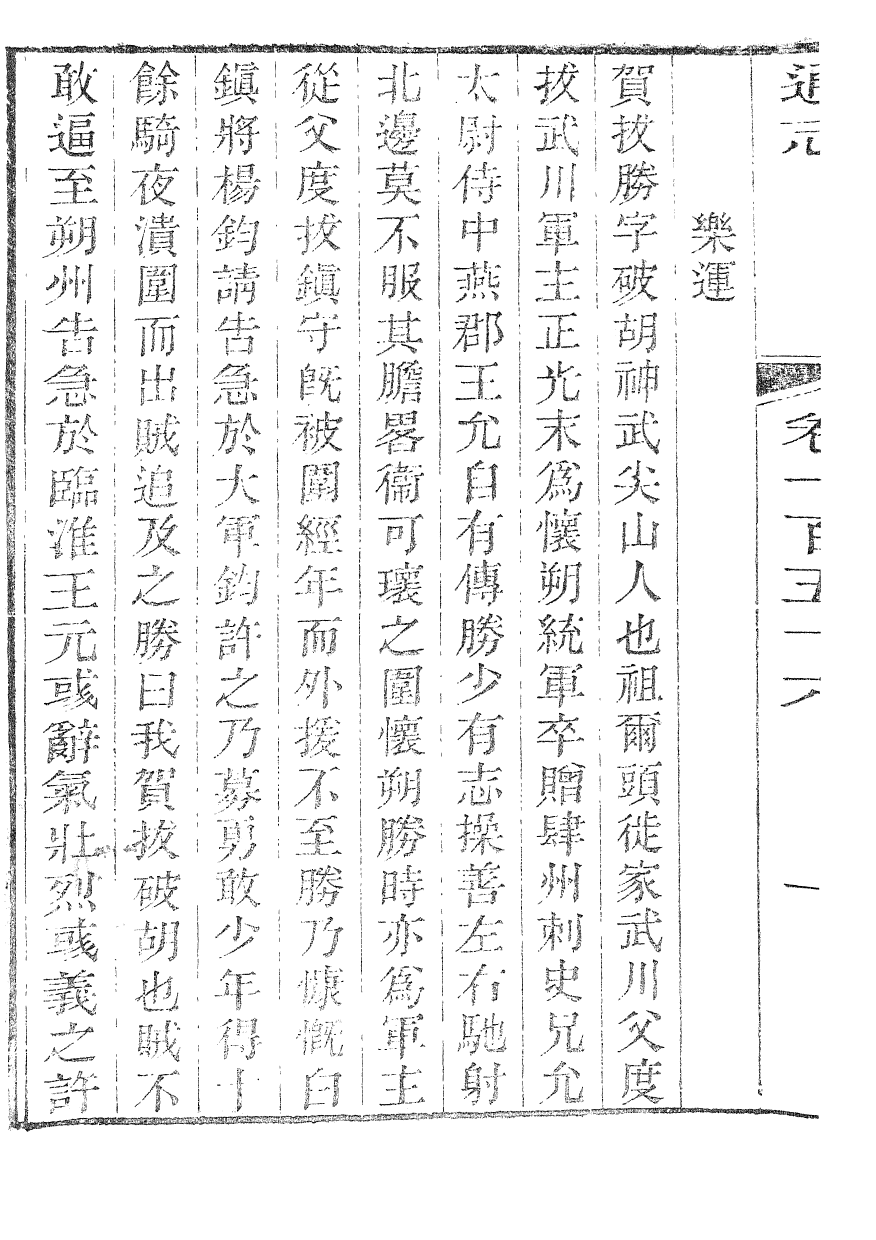 通元
卷一百五十六
一
樂運
賀拔勝字破胡神武尖山人也祖爾頭徙家武川父度
拔武川軍主正光末爲懷朔統軍卒贈肆州刺史兄允
太尉侍中燕郡王允自有傳勝少有志操善左右馳射
北邊莫不服其膽畧衞可瓌之圍懷朔勝時亦爲軍主
從父度拔鎭守旣被圍經年而外援不至勝乃慷慨白
鎭將楊鈞請告急於大軍鈞許之乃募勇敢少年得十
餘騎夜潰圍而出賊追及之勝曰我賀拔破胡也賊不
敢逼至朔州告急於臨淮王元彧辭氣壯烈彧義之許